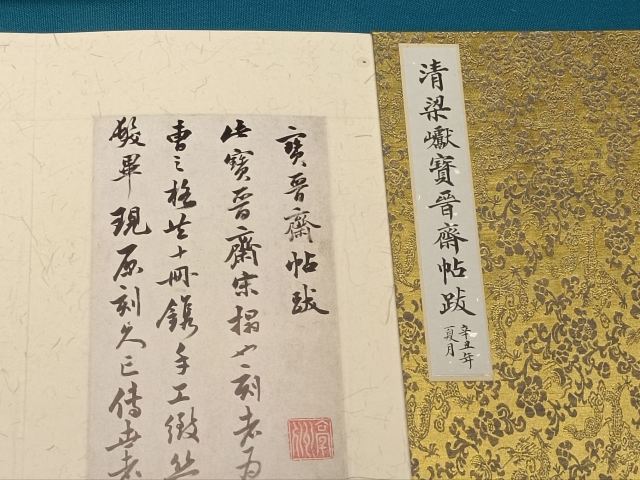 清梁巘寶晉齋帖跋
辛丑年
夏月
寶晉齋帖跋
此寶晉齋宋搨也刻者為
曹之格共十冊鐫手工緻絲
髮畢現原刻久已傳世者